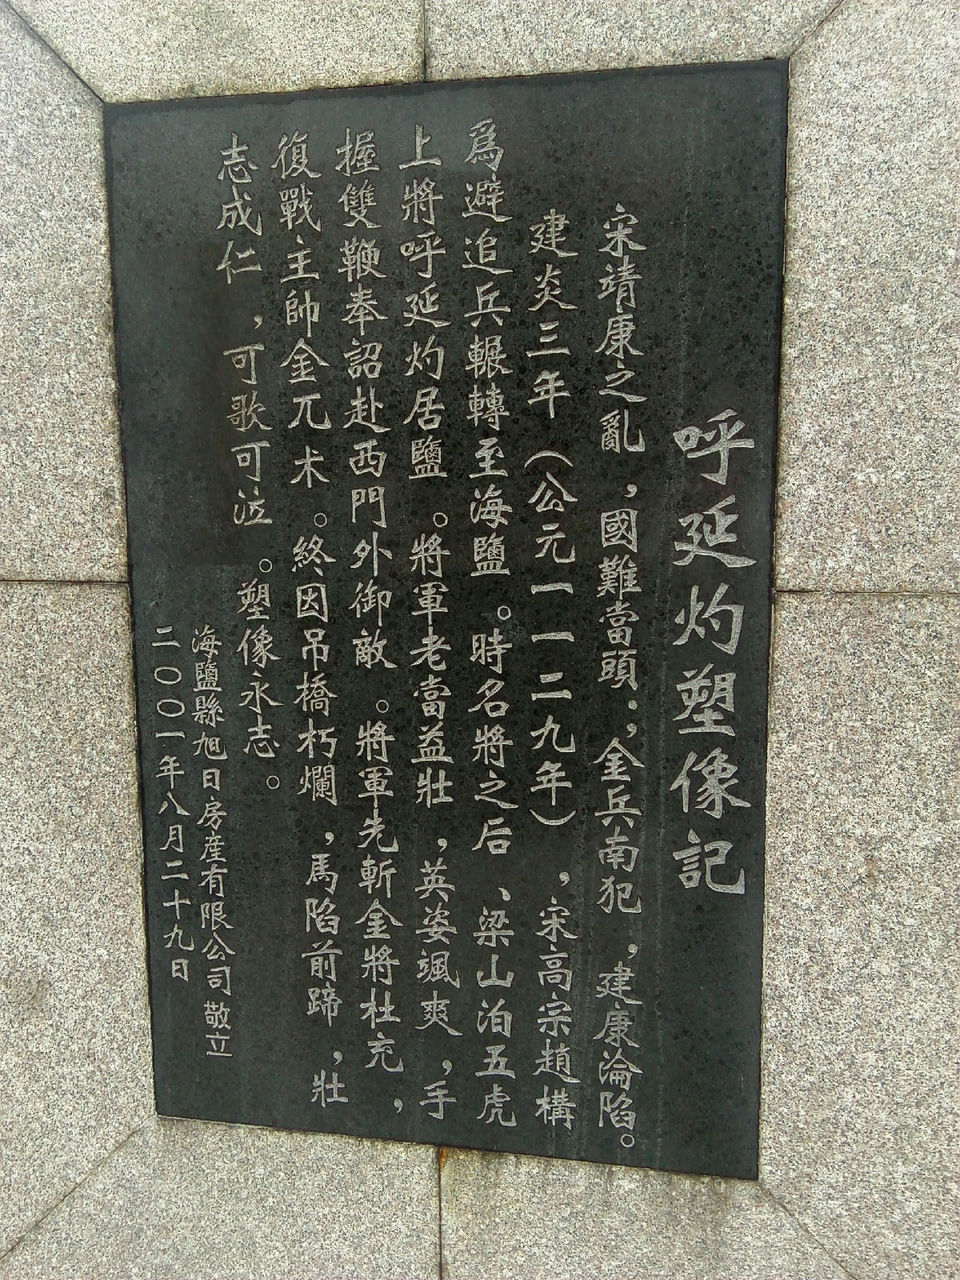 呼延灼塑像記
宋靖康之亂，國難當頭；金兵南犯，建康淪陷。
建炎三年（公元一一二九年），宋高宗趙構
爲避追兵輾轉至海鹽。時名將之后、梁山泊五虎
上將呼延灼居鹽。將軍老當益壯，英姿颯爽，手
握雙鞭奉詔赴西門外御敵。將軍先斬金將杜充，
復戰主帥金兀术。終因吊橋朽爛，馬陷前蹄，壯
志成仁，可歌可泣。塑像永志。
海鹽縣旭日房産有限公司 敬立
二〇〇一年八月二十九日